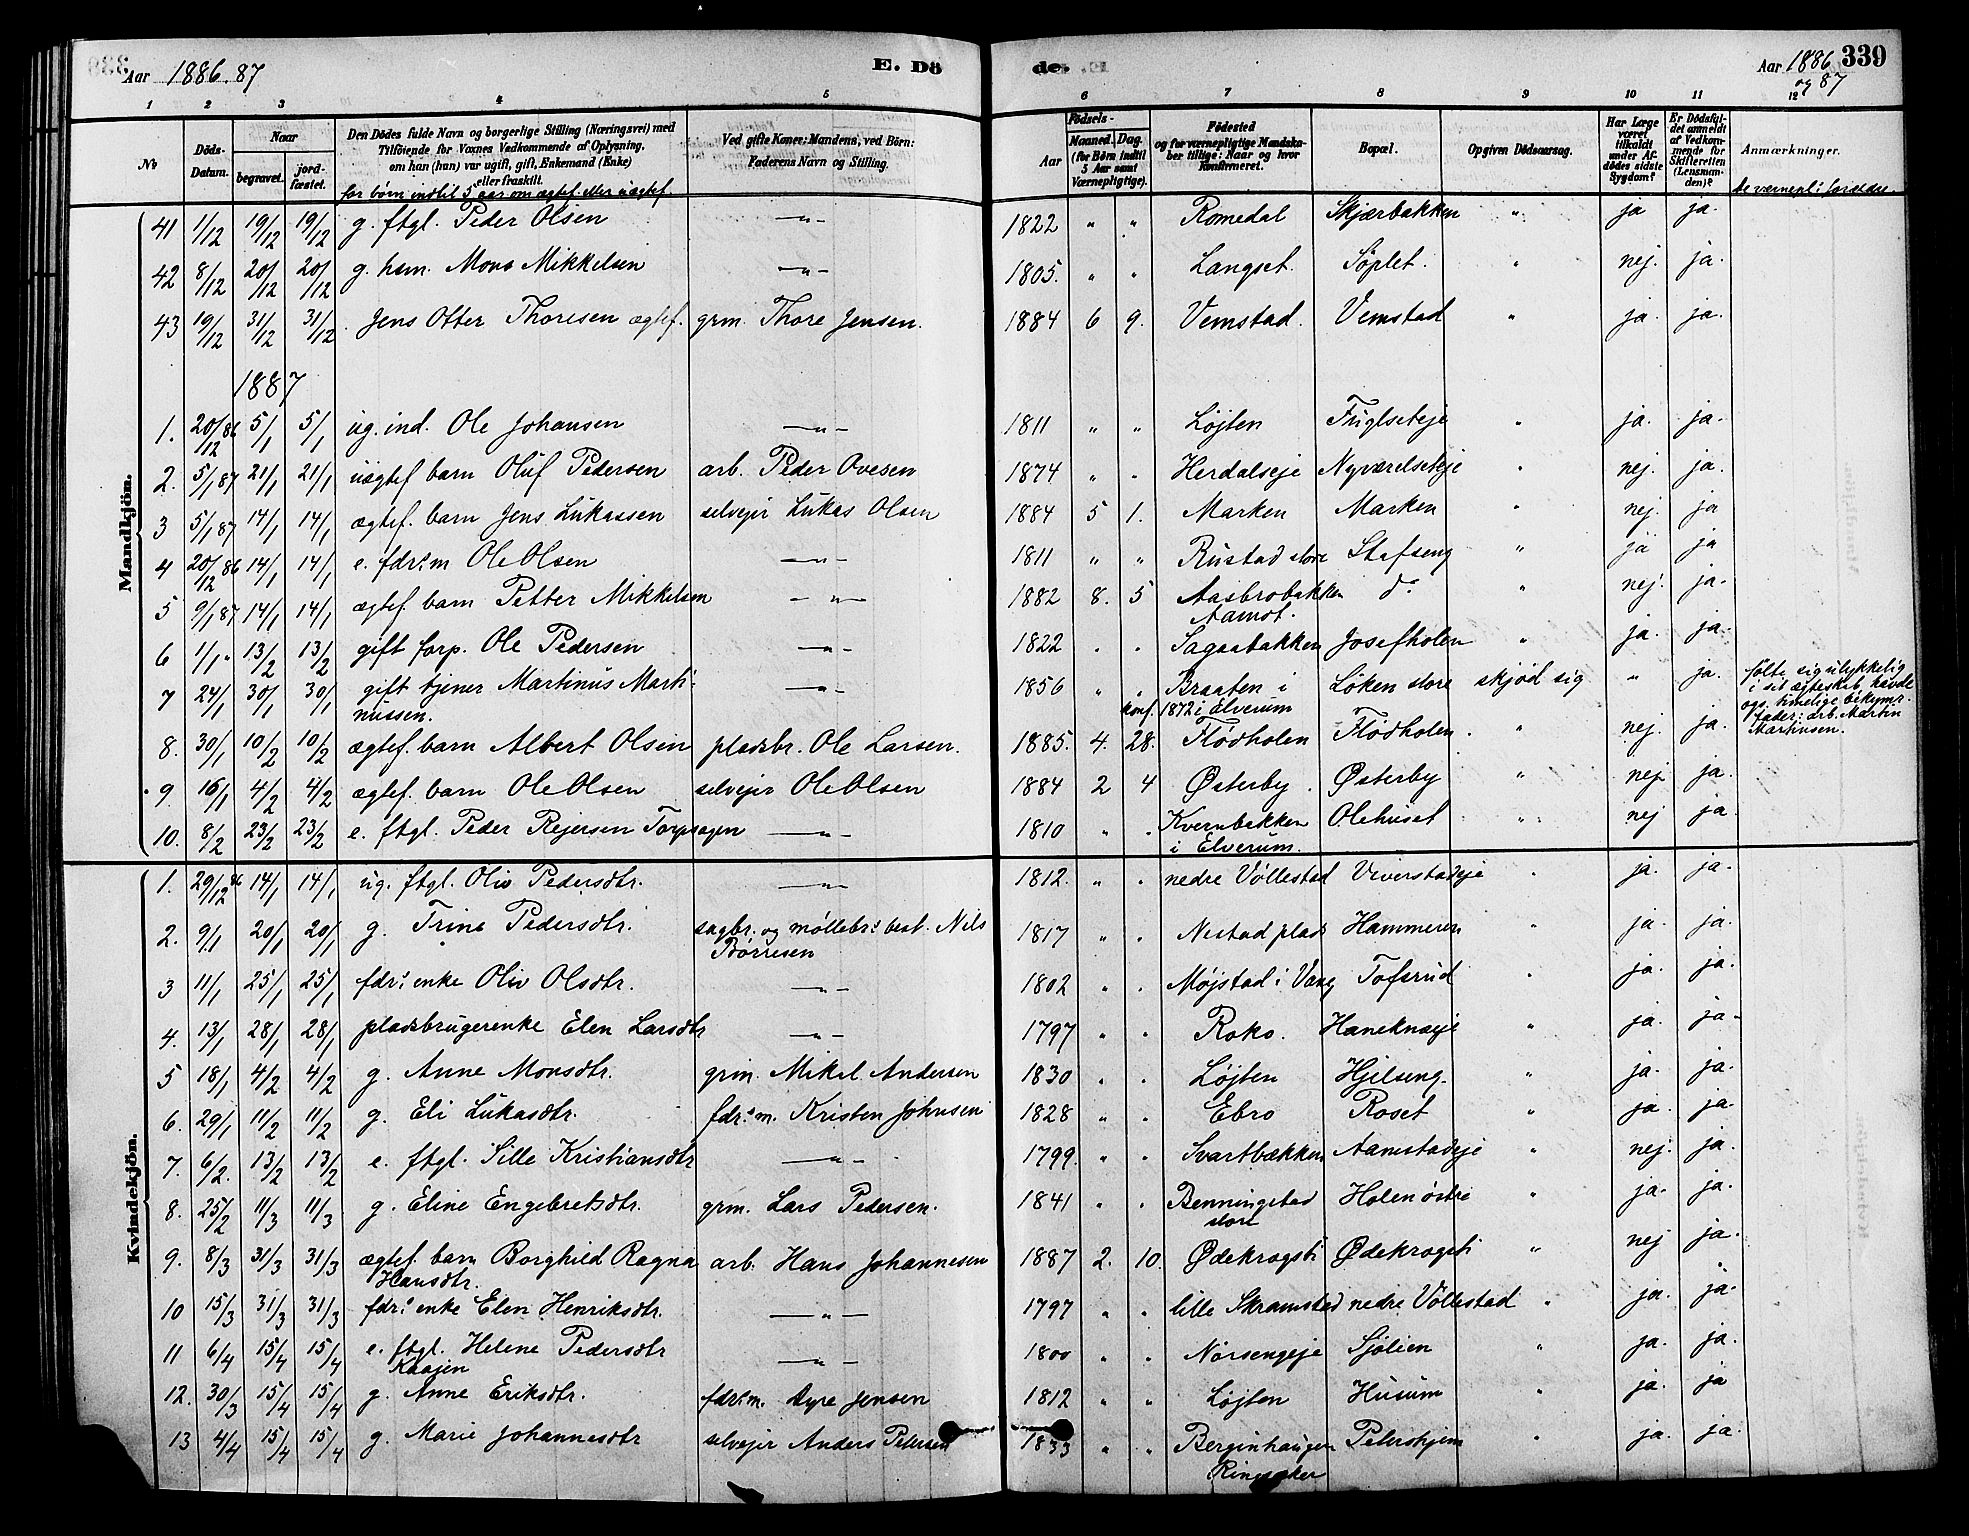 Aar 1886.87
E. Dö
de.
Aar 1886 og 87
339
1 2 3 4 5 6 7 8 9 10 11 12
No
Döds-Datum.
Naar
begravet.
jord-fæstet.
Den Dödes fulde Navn og borgerlige Stilling (Næringsvei) med
Tilföiende for Voxnes Vedkommende af Oplysning,
om han (hun) var ugift, gift, Enkemand (Enke)
eller fraskilt.
for børn indtil 5 aar om ægtef. eller uægtef.
Ved gifte Koner: Mandens, ved Börn:
Faderens Navn og Stilling.
Födsels-
Aar
Maaned. Dag.
(for Börn indtil
5 Aar samt
Værnepligtige).
Födested
og for værnepligtige Mandska-
ber tillige: Naar og hvor
Konfirmeret.
Bopæl.
Opgiven Dödsaarsag.
Har Læge
været
tilkaldt
under Af-
dödes sidste
Sygdom?
Er Dödsfal-
det anmeldt
af Vedkom-
mende for
Skifteretten
(Lensman-
den)?
Anmærkninger.
Mandkjön.
41 1/12 19/12 19/12 g. ftgl. Peder Olsen —„— 1822 „ „ Romedal Skjærbakken „ ja ja.
42 8/12 20/12 20/12 g. hsm. Mons Mikkelsen —„— 1805. „ „ Langset. Söplet. „ nej. ja.
43 19/12 31/12 31/12 Jens Otter Thoresen ægtef. grm. Thore Jensen. 1884 6 9. Vemstad. Vemstad „ ja. ja.
1887
1. 20/12 86 5/1 5/1 ug. ind. Ole Johansen —„— 1811 „ „ Løjten Fuglseteje „ ja. ja.
2. 5/1 87 21/1 21/1 uægtef barn Oluf Pedersen arb. Peder Ovesen 1874 „ „ Herdalseje Nyværelseteje „ nej. ja.
3 5/1 87 14/1 14/1 ægtef. barn Jens Lukassen selvejer Lukas Olsen 1884 5 1. Marken Marken „ nej. ja
4 20/12 86 14/1 14/1 e. fdr. m Ole Olsen —„— 1811 „ „ Rustad store Stafseng „ ja ja
5 9/1 87 14/1 14/1 ægtef. barn Petter Mikkelsen —„— 1882 8. 5 Aasbrobakken do „ nej. ja.
Aamot.
6 1/1 „ 13/2 13/2 gift forp. Ole Pedersen —„— 1822 „ „ Sagaabakken Josefholen „ ja. ja.
7 24/1 30/1 30/1 gift tjener Martinus Marti- —„— 1856 „ „ Braaten i Løken store skjød sig „ ja. følte sig ulykkelig
nussen. konf. 1872 i Elverum i sit ægteskab, havde
ogs. timelige bekymr.
fader: arb. Martin
8. 30/1 10/2 10/2 ægtef. barn Albert Olsen pladsbr. Ole Larsen. 1885. 4. 28. Flödholen Flödholen „ nej. ja.
9. 16/1 4/2 4/2 ægtef. barn Ole Olsen selvejer Ole Olsen 1884 2 4 Østerby. Østerby „ nej. ja.
10. 8/2 23/2 23/2 e. ftgl. Peder Rejersen Torpsagen —„— 1810 „ „ Kvernbakken Olehuset „ nej ja.
i Elverum.
Kvindekjön.
1. 29/12 86 14/1 14/1 ug. ftgl. Oliv Pedersdtr. —„— 1812. „ „ nedre Völlestad Viverstadeje „ ja. ja.
2. 9/1 20/1 20/1 g. Trine Pedersdtr. sagbr. og möllebr. best. Nils 1817 „ „ Nestad plads Hammeren „ ja. ja.
Börresen
3 11/1 25/1 25/1 fdr. enke Oliv Olsdtr. —„— 1802 „ „ Møjstad i Vang Tofsrud „ ja. ja.
4. 13/1 28/1 28/1 pladsbrugerenke Elen Larsdtr —„— 1797 „ „ Roko. Haneknæeje „ ja. ja.
5 18/1 4/2 4/2 g. Anne Monsdtr. grm. Mikel Andersen 1830 „ „ Løjten Hjelseng. „ ja. ja.
6. 29/1 11/2 11/2 g. Eli Lukasdtr. fdr. m. Kristen Johnsen 1828 „ „ Ebro Roset „ ja. ja.
7. 6/2. 13/2 13/2 e. ftgl. Sille Kristiansdtr —„— 1799. „ „ Svartbækken Aamstadeje „ nej. ja.
8. 25/2 11/3 11/3 g. Eline Engebretsdtr. grm. Lars Pedersen. 1841 „ „ Benningstad Holen østre „ ja. ja.
store
9. 8/3 31/3 31/3 ægtef. barn Borghild Ragna arb. Hans Johannesen 1887 2. 10. Ødekrogsti Ødekrogsti „ nej ja.
Hansdtr.
10 15/3 31/3 31/3 fdr. enke Elen Henriksdtr. —„— 1797 „ „ lille Skramstad nedre Völlestad „ ja. ja.
11 6/4 15/4 15/4 e. ftgl. Helene Pedersdtr —„— 1800 „ „ Nørsengeje Sjölien „ ja. ja.
Kaajen
12. 30/3 15/4 15/4 g. Anne Eriksdtr. fdr. m. Dyre Jensen 1812 „ „ Løjten Husum „ ja. ja
13 4/4 15/4 15/4 g. Marie Johannesdtr selvejer Anders Petersen 1833 „ „ Berginhaugen Peterskjem „ ja. ja.
Ringsaker